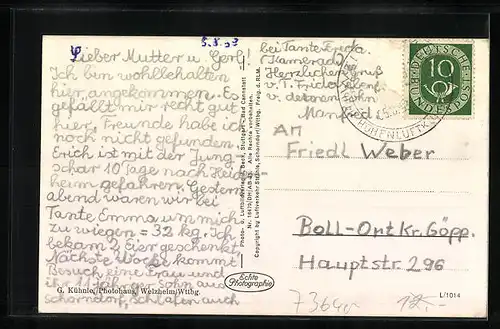 5.8.53
Lieber Mutter u. Gerh!
Ich bin wohlbehalten
hier angekommen. Es
gefällt mir recht gut
hier, Freunde habe ich
noch nicht gefunden.
Erich ist mit der Jung-
schar 10 Tage nach Heid-
heim gefahren. Gestern
abend waren wir bei
Tante Emma um mich
zu wiegen = 32 kg. Ich
bekam 2 Eier geschenkt
Nächste Woche kommt
Besuch eine Frau und
ihr 11 Jähriger Sohn aus
Schorndorf, Schlafen auch
bei Tante
Kamerad
Herzlichen Gruß
v. T. Frida
u. deinem Sohn
Manfred
Photo- u. Luftbild Stuttgart-Bad Cannstatt
Alle Rechte vorbehalten.
Copyright by Luftverkehr-Strähle, Schorndorf/Wttbg. Freig. d. RLM.
DEUTSCHE
BUNDESPOST
10
HÖHENLUFTK
An
Friedl Weber
Boll-Ort Kr. Göpp.
Hauptstr. 296
Echte
Photographie
G. Kühnle, Photohaus, Welzheim/Wttbg.
L/1014
12,-